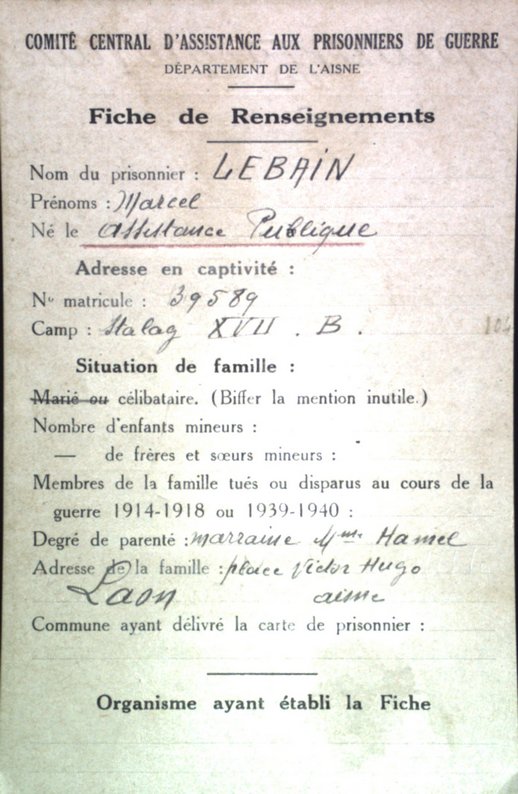 COMITÉ CENTRAL D'ASSISTANCE AUX PRISONNIERS DE GUERRE
DÉPARTEMENT DE L'AISNE
Fiche de Renseignements
Nom du prisonnier : LEBAIN
Prénoms : Marcel
Né le Assistance Publique
Adresse en captivité :
N° matricule : 39589
Camp : Stalag XVII . B .
Situation de famille :
Marié ou célibataire. (Biffer la mention inutile.)
Nombre d'enfants mineurs :
— de frères et sœurs mineurs :
Membres de la famille tués ou disparus au cours de la
guerre 1914-1918 ou 1939-1940 :
Degré de parenté : marraine Mme Hamel
Adresse de la famille : place Victor Hugo
Laon aisne
Commune ayant délivré la carte de prisonnier :
Organisme ayant établi la Fiche